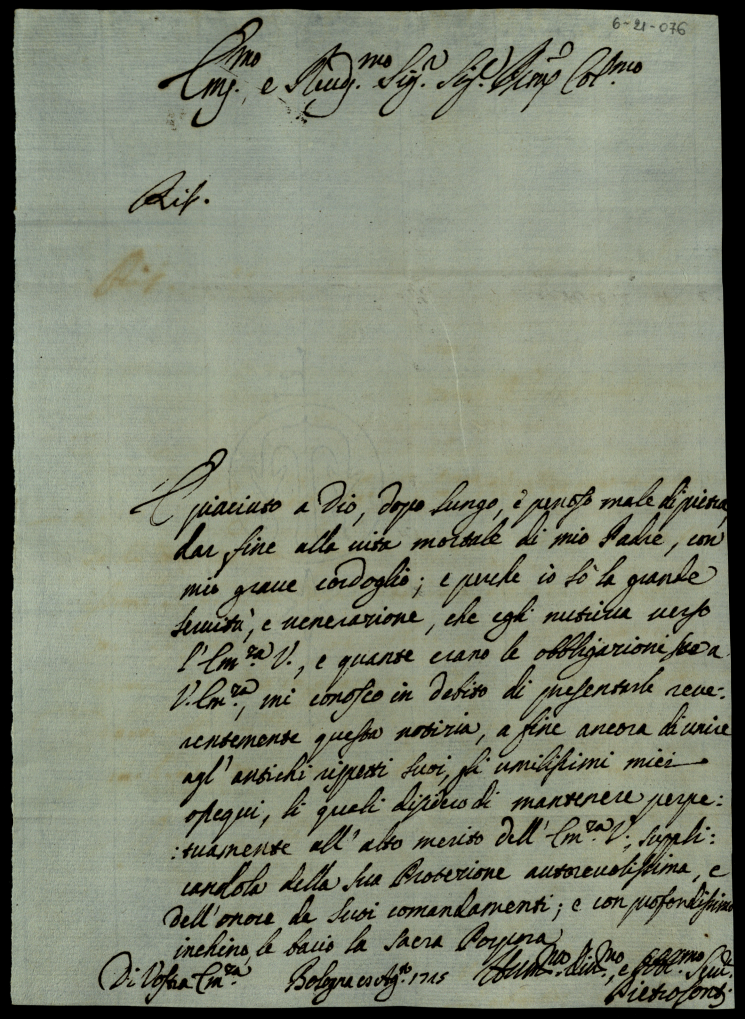 6-21-076
Em.mo e Reud.mo Sig.r Sig.r Col.mo
Ris.
È piaciuto a Dio, dopo lungo, è penoso male di pietra,
dar fine alla uita mortale di mio Padre, con
mio graue cordoglio; e perche io sò la grande
seruitù, e uenerazione, che egli nutriua uerso
l'Em.za V., e quante erano le obbligazioni a
V. Em.za, mi conosco in debito di presentarle reue:
rentemente questa notizia, a fine ancora di unire
agl'antichi rispetti suoi, gli umilissimi miei
ossequi, li quali desidero di mantenere perpe:
:tuamente all'alto merito dell'Em.za V., suppli:
candola della sua Protezione autoreuolissima, e
dell'onore de suoi comandamenti; e con profondissimo
inchino, le bacio la sacra Porpora
Di Vostra Em.za Bologna Ag.to 1715 Hum.mo Diu.mo, e Obb.mo Seru.
Pietro Conti